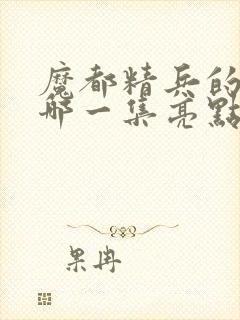 魔都精兵的
哪一集亮點
果冉